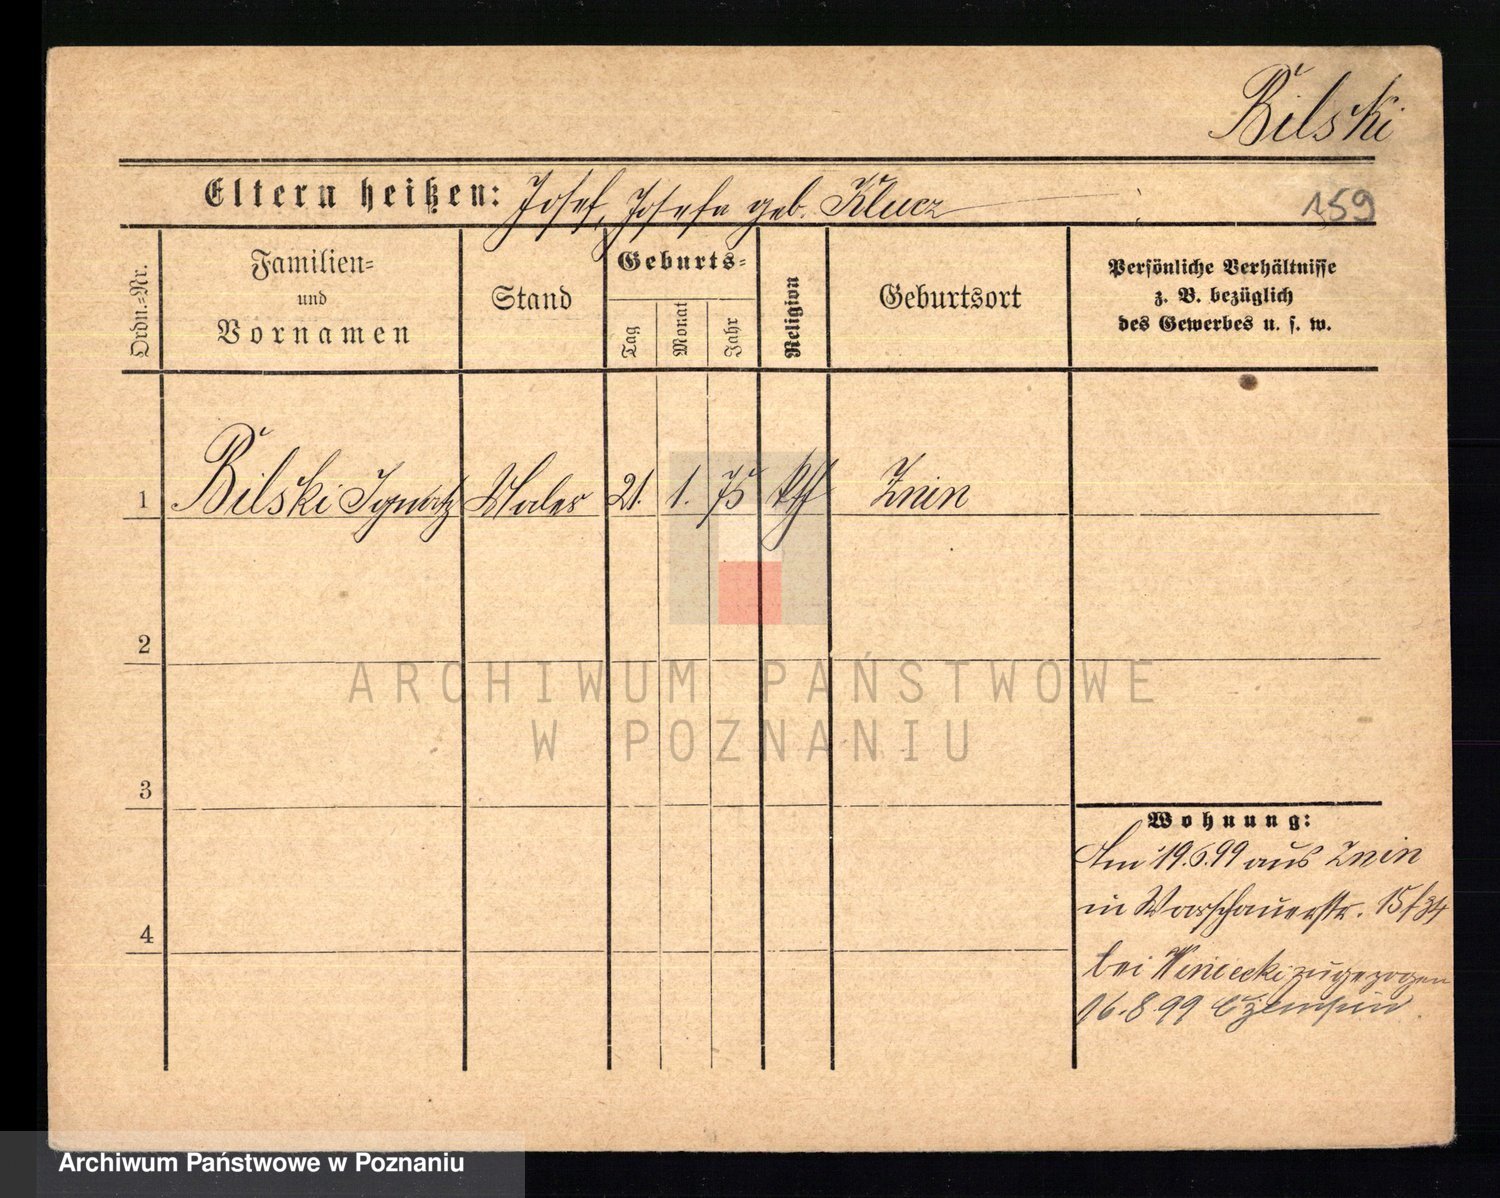 Bilski
Eltern heißen: Josef, Josefa geb. Klucz
159
Ordn.-Nr.
Familien-
und
Vornamen
Stand
Geburts-
Tag
Monat
Jahr
Religion
Geburtsort
Persönliche Verhältnisse
z. B. bezüglich
des Gewerbes u. s. w.
1 Bilski Ignatz Maler 21. 1. 75 kth Znin
2
ARCHIWUM PAŃSTWOWE
W POZNANIU
3
Wohnung:
Am 19.6.99 aus Znin
in Warschauerstr. 15/34
4
bei Winiecki zugezogen
16.8.99
Archiwum Państwowe w Poznaniu